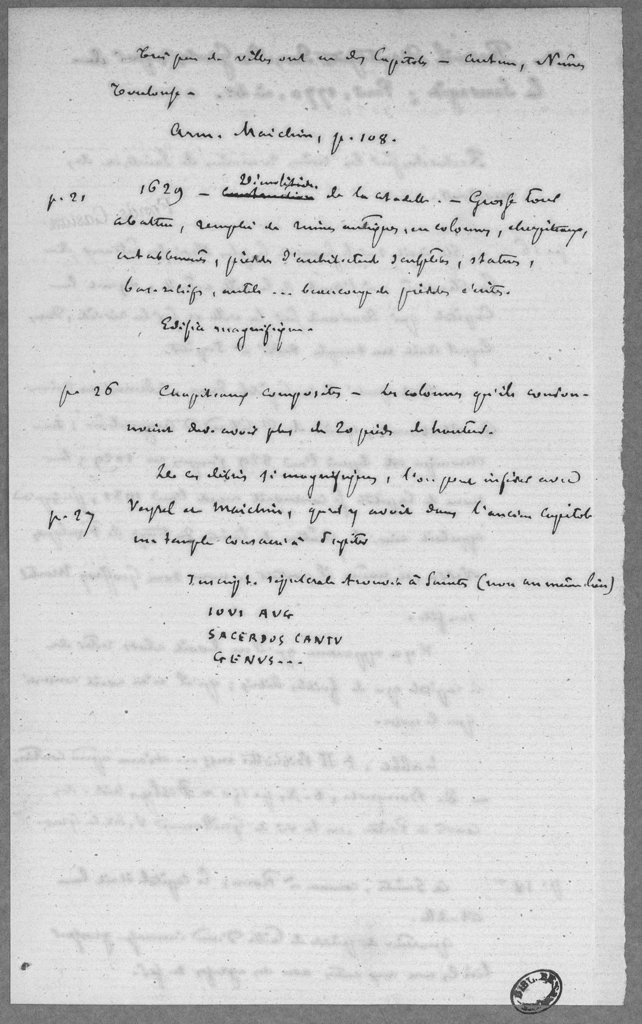 Très peu de villes ont eu des Capitoles – Autun, Nîmes
Toulouse –
Arm. Maichin, p. 108.
p. 21 1629 – Démolition de la citadelle. – Grosse tour
abattue, remplie de ruines antiques, en colonnes, chapiteaux,
entablements, pierres d'architecture sculptées, statues,
bas-reliefs, autels ... beaucoup de pierres écrites.
Edifice magnifique.
p. 26 Chapiteaux composites – les colonnes qu'ils couron-
noient dev. avoir plus de 20 pieds de hauteur.
De ces débris si magnifiques, l'on peut inférer avec
p. 27 Veyrel et Maichin, qu'il y avoit dans l'ancien capitole
un temple consacré à Jupiter
Inscript. sépulcrale trouvée à Saintes (non au même lieu)
IOVI AVG
SACERDOS CANTV
GENVS...
BIBL.